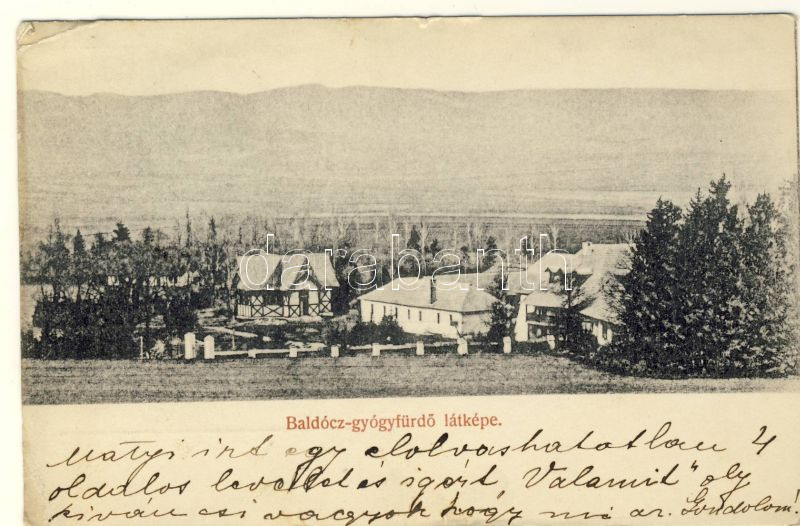 darabanth
Baldócz-gyógyfürdő látképe.
Mátyi irt egy elolvashatatlan 4
oldalos levelet és igért „Valamit" oly
kiváncsi vagyok hogy mi az. Gondolom!